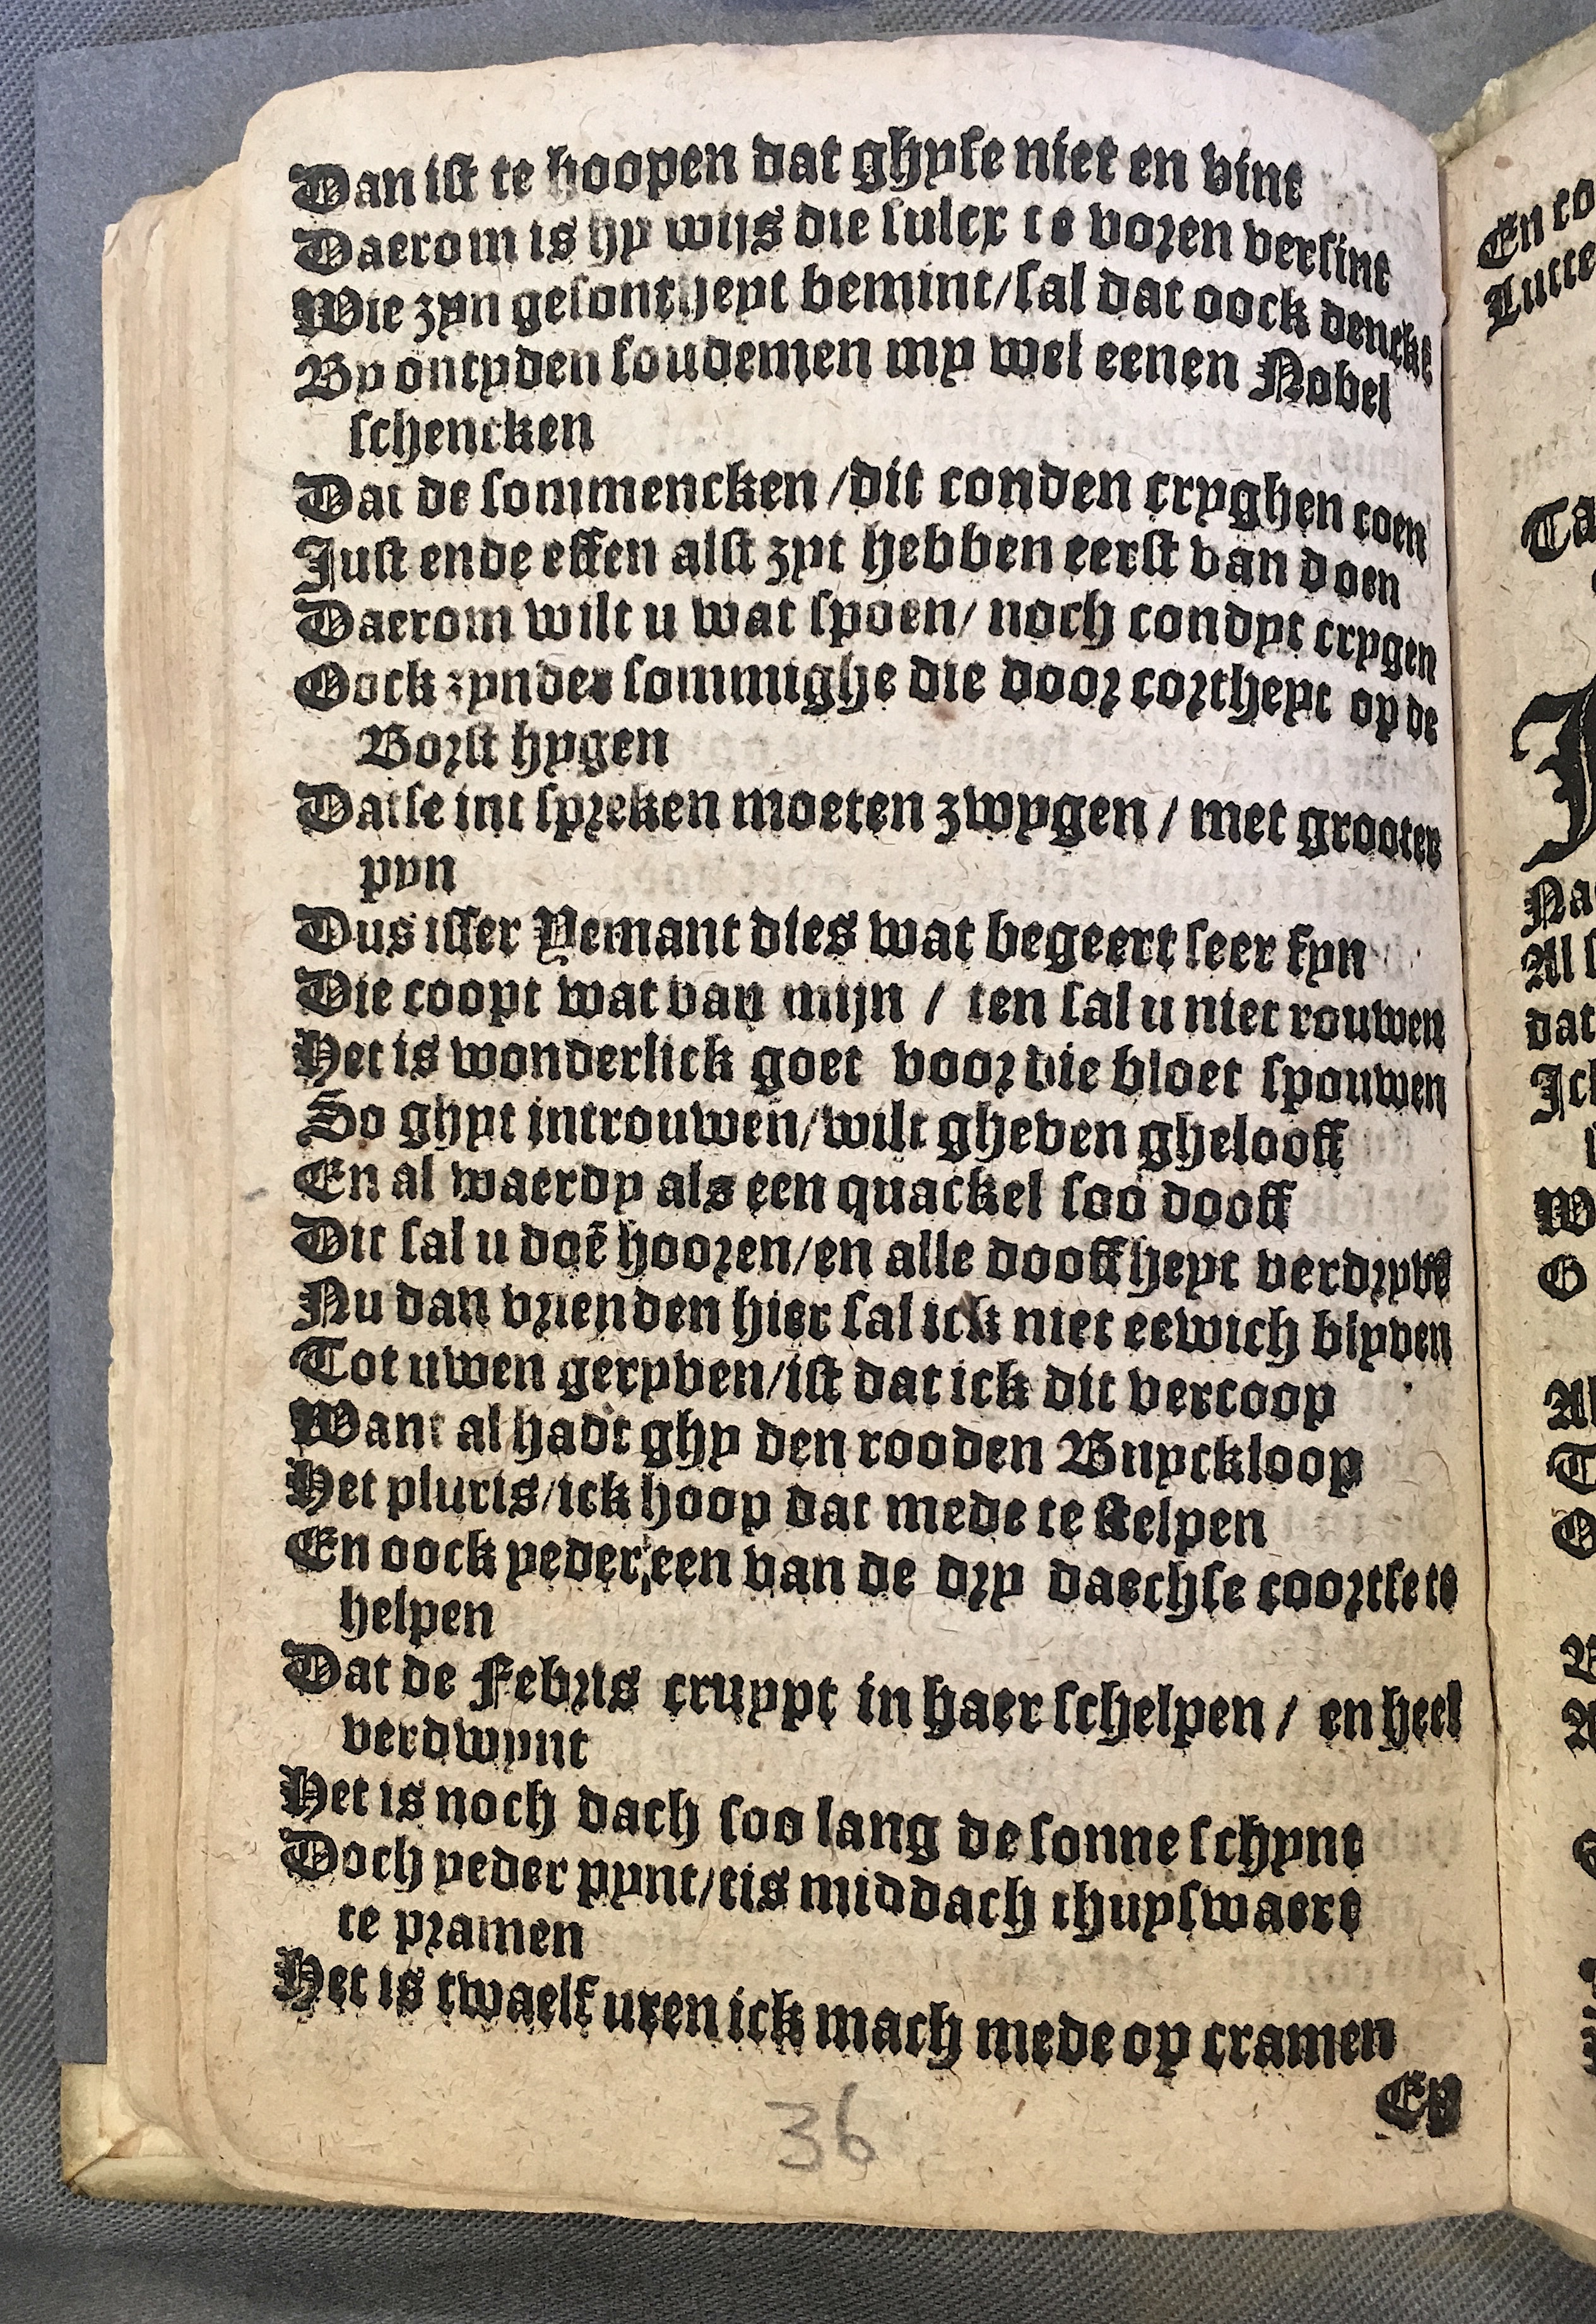 Dan ist te hoopen dat ghyse niet en vint
Daerom is hy wijs die sulcx te voren versint
Wie zyn gesontheyt bemint/sal dat oock dencke
By ontyden soudemen my wel eenen Nobel
schencken
Dat de sommencken /dit conden cryghen coen
Just ende effen alst zyt hebben eerst van doen
Daerom wilt u wat spoen/ noch condyt crygen
Oock zynder sommighe die door cortheyt op de
Borst hygen
Datse int spreken moeten zwygen / met grooter
pyn
Dus isser Yemant dies wat begeert seer fyn
Die coopt wat van mijn / ten sal u niet rouwen
Het is wonderlick goet voor die bloet spouwen
So ghyt introuwen/wilt gheven ghelooff
En al waerdy als een quackel soo dooff
Dit sal u doē hooren/en alle dooffheyt verdryvē
Nu dan vrienden hier sal ick niet eewich blyven
Tot uwen geryven/ist dat ick dit vercoop
Want al hadt ghy den rooden Buyckloop
Het pluris/ick hoop dat mede te stelpen
En oock yeder een van de dry daechse coortse te
helpen
Dat de Febris cruypt in haer schelpen / en heel
verdwynt
Het is noch dach soo lang de sonne schynt
Doch yeder pynt/tis middach thuyswaert
te pramen
Het is twaelf uren ick mach mede op cramen
Ey
36
En co
Lutte
Ta
J
Na
Al s
dat
Ick
W
O
Al
T
O